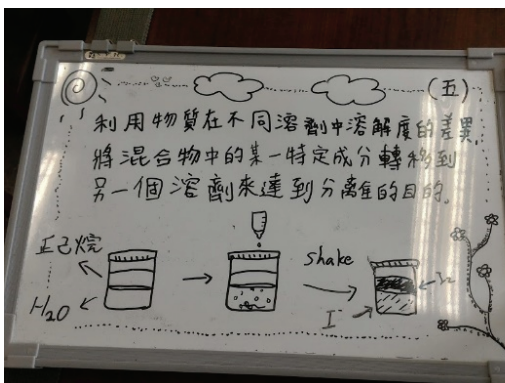 (五)
利用物質在不同溶劑中溶解度的差異,
將混合物中的某一特定成分轉移到
另一個溶劑來達到分離的目的。
正己烷
H₂O
shake
I₂
I⁻